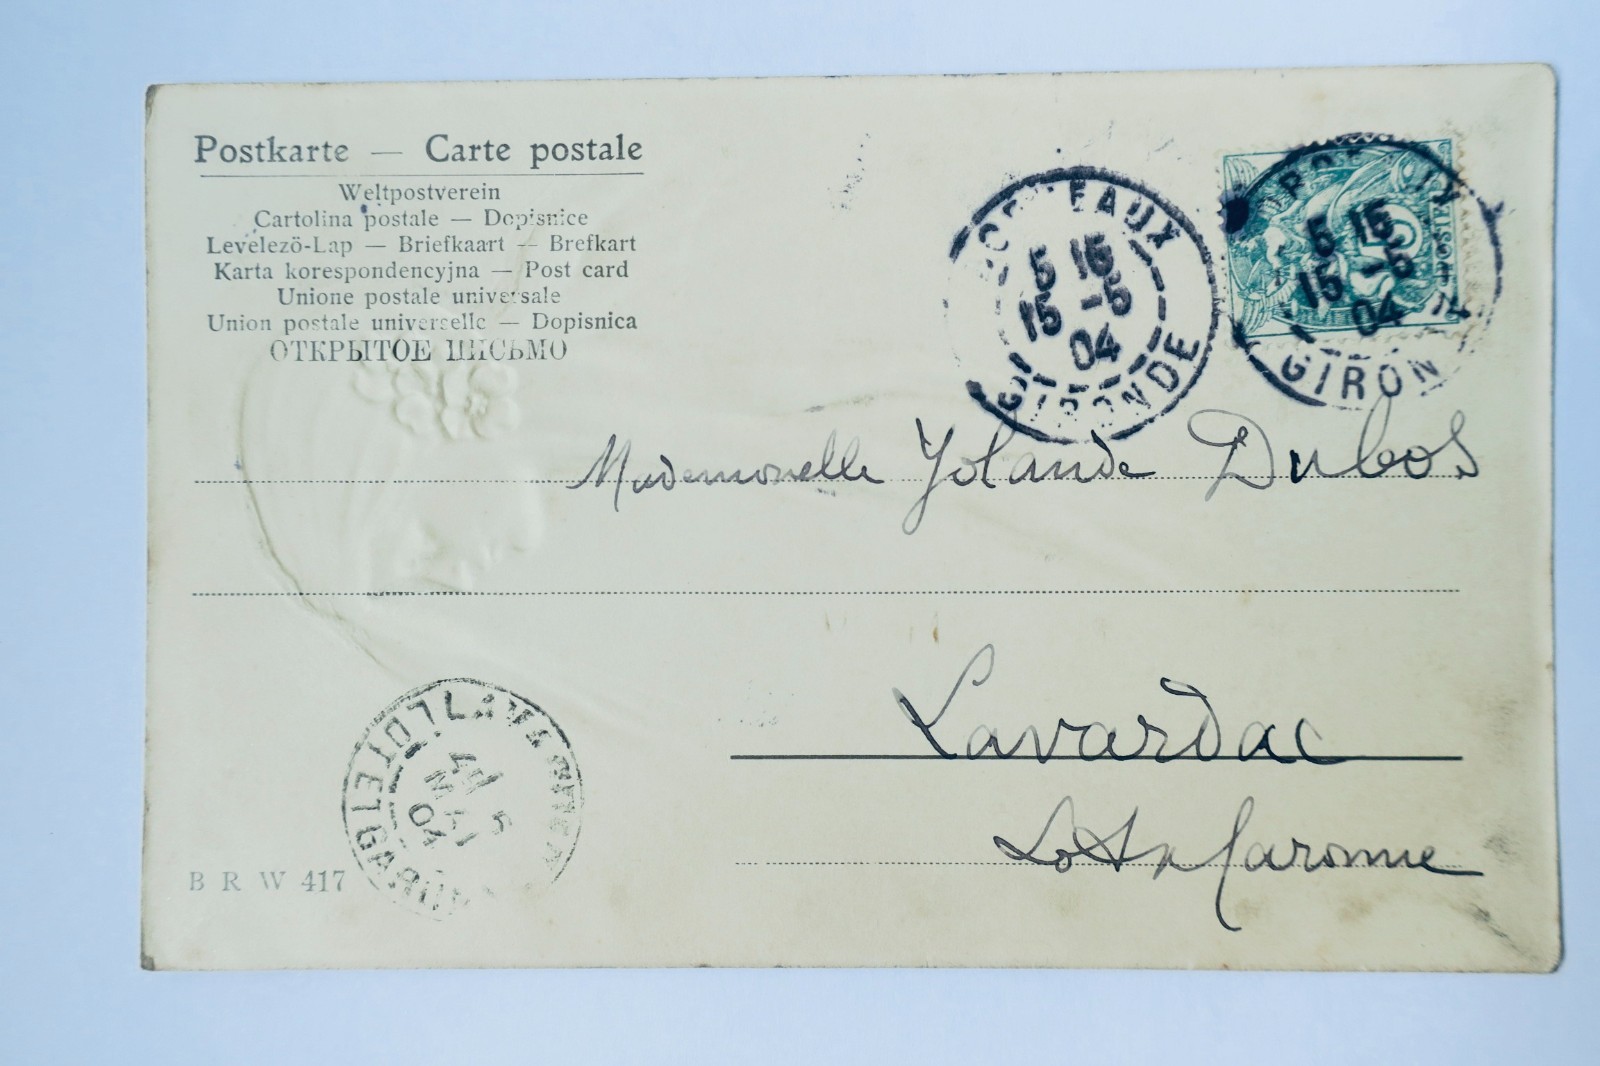 Postkarte — Carte postale
Weltpostverein
Cartolina postale — Dopisnice
Levelezö-Lap — Briefkaart — Brefkart
Karta korespondencyjna — Post card
Unione postale universale
Union postale universelle — Dopisnica
ОТКРЫТОЕ ПИСЬМО
BORDEAUX
5 15
15 -5
04
GIRONDE
BORDEAUX
5 15
15 -5
04
GIRONDE
5
Mademoiselle Yolande Dubos
Lavardac
Lot & Garonne
LAVARDAC
MAI
04
LOT ET GARONNE
B R W 417